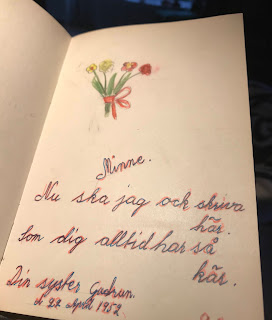 Minne.
Nu ska jag och skriva
här.
Som dig alltid har så
kär.
Din syster Gudrun.
d. 27. April 1952.